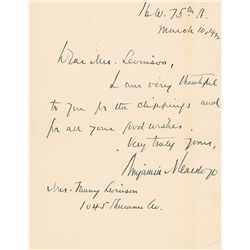 16 W. 75th St.
March 10, 1932
Dear Mrs. Levinson,
I am very thankful
to you for the clippings and
for all your good wishes.
Very truly yours,
Benjamin N. Cardozo
Mrs. Fanny Levinson
1045 Sherman Av.